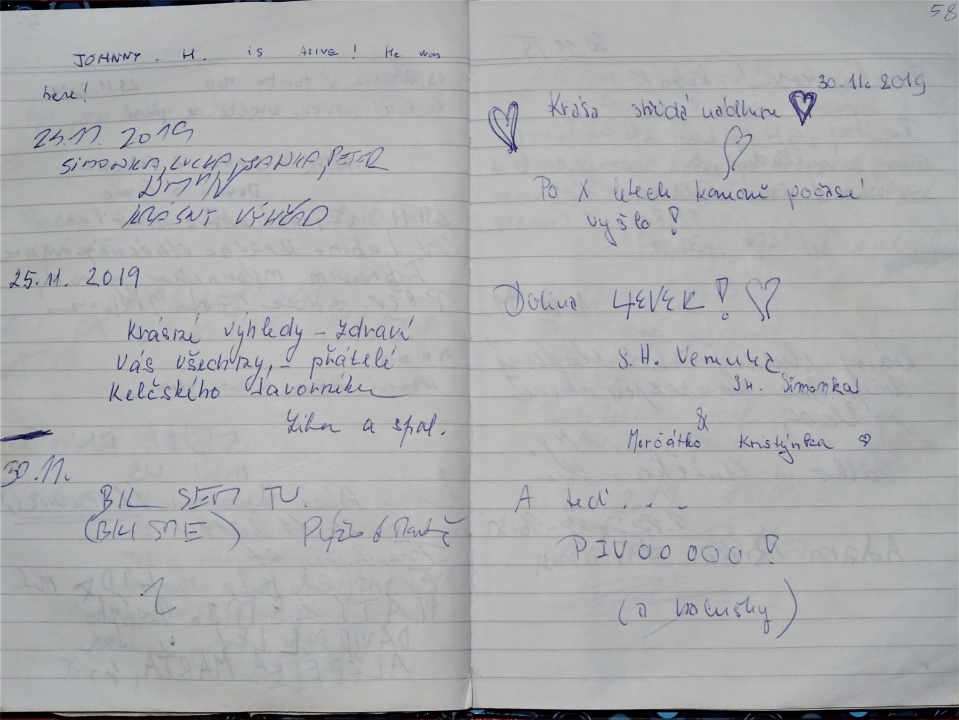 JOHNNY . H. is ALIVE! He was
here!
23.11. 2019
SIMONKA, LUCKA, JANKA, PETER
KRÁSNY VÝHĽAD
25.11. 2019
Krásné výhledy – zdraví
Vás všechny, – přátelé
Kelčského Javorníku
Liba a spol.
30.11.
BIL SEM TU.
(BILI SME)
58
30.11. 2019
Krása střídá nádheru
Po X letech konečně počasí
vyšlo!
Dolina 4EVER!
S.H. Verunka
SH. Simonka
&
Morčátko Kristýnka
A teď . . .
PIVOOOOOO!
(a halušky)